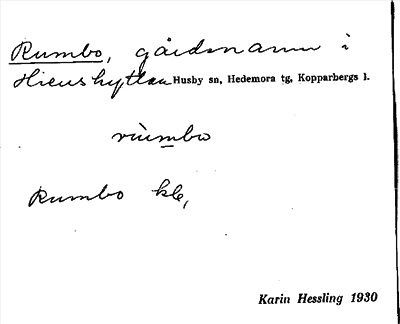 Rumbo, gårdsnamn i
Hieushyttan Husby sn, Hedemora tg, Kopparbergs l.
rùmbo
Rumbo kle,
Karin Hessling 1930